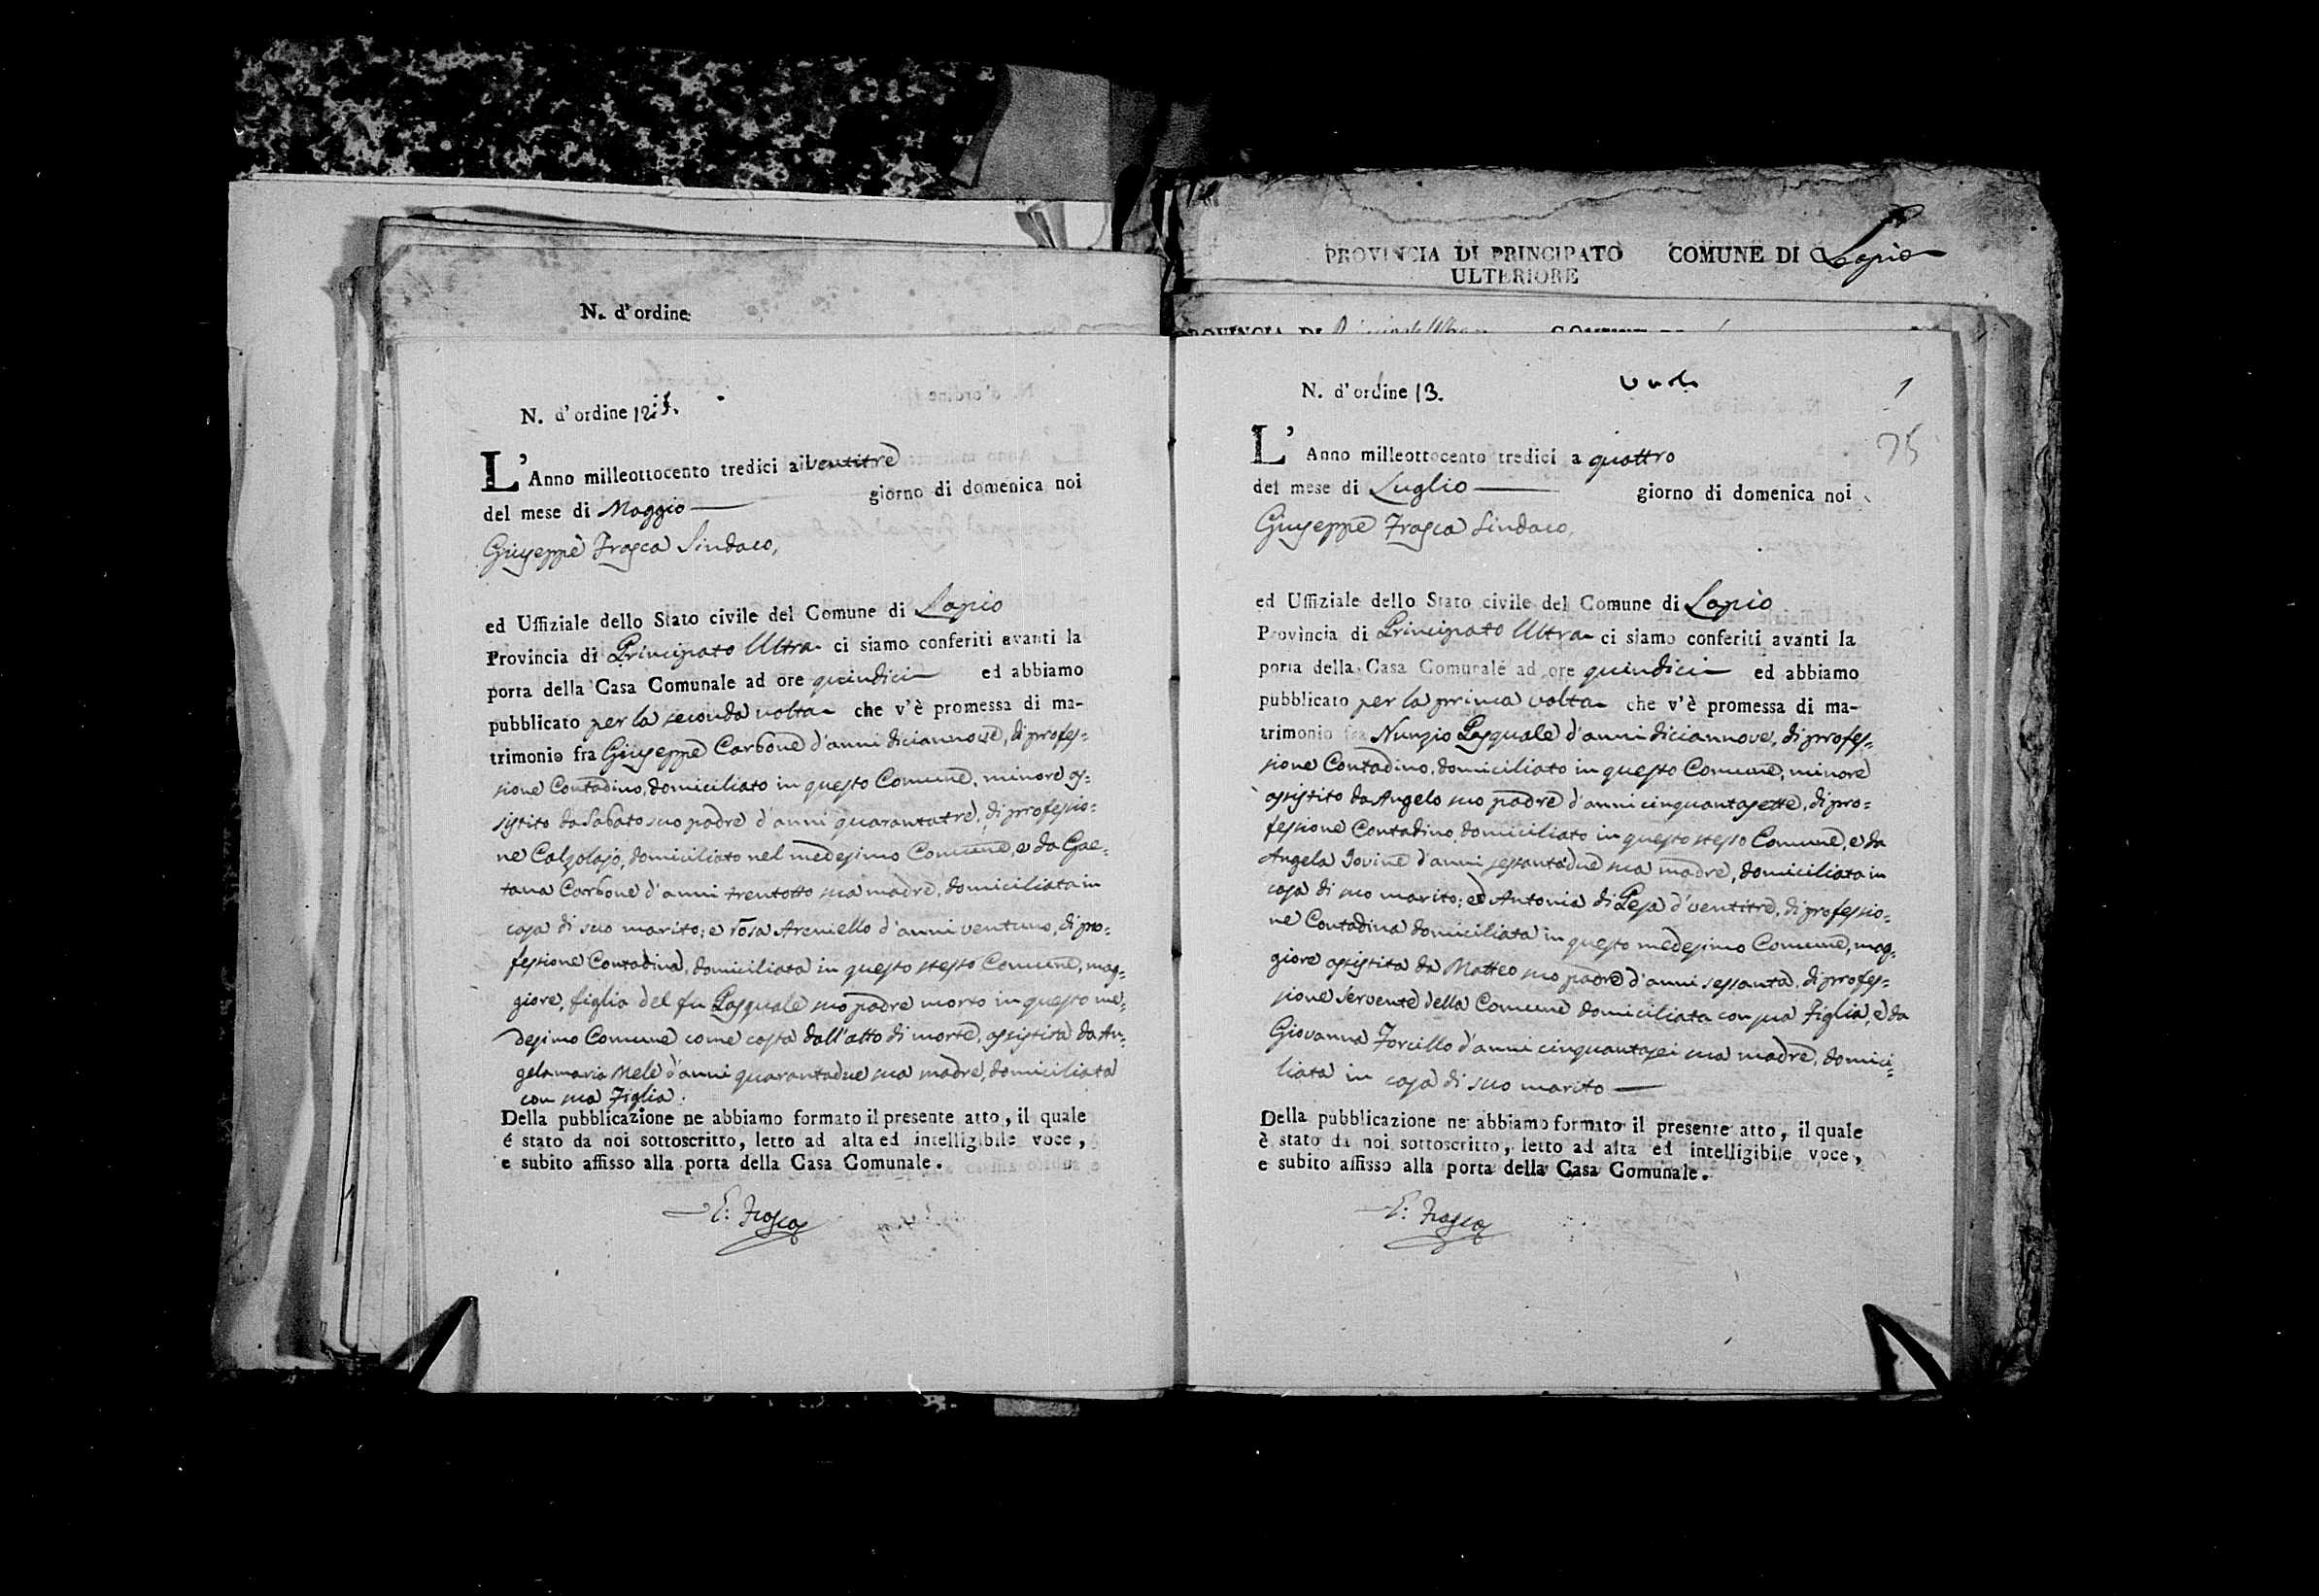 PROVINCIA DI PRINCIPATO ULTERIORE COMUNE DI Lapio
N. d'ordine
N. d'ordine 12.
L'Anno milleottocento tredici a ventitrè
del mese di Maggio giorno di domenica noi
Giuseppe Frasca Sindaco,
ed Uffiziale dello Stato civile del Comune di Lapio
Provincia di Principato Ultra ci siamo conferiti avanti la
porta della Casa Comunale ad ore quindici ed abbiamo
pubblicato per la seconda volta che v'è promessa di ma-
trimonio fra Giuseppe Carbone d'anni diciannove, di profes=
sione Contadino, domiciliato in questo Comune, minore as=
sistito da Sabato suo padre d'anni quarantatrè, di professio=
ne Calzolajo, domiciliato nel medesimo Comune, e da Gae=
tana Carbone d'anni trentotto sua madre, domiciliata in
casa di suo marito; e Rosa Arciello d'anni ventuno, di pro=
fessione Contadina, domiciliata in questo stesso Comune, mag=
giore, figlia del fu Pasquale suo padre morto in questo me=
desimo Comune come costa dall'atto di morte, assistita da An=
gelamaria Mele d'anni quarantadue sua madre, domiciliata
con sua Figlia.
Della pubblicazione ne abbiamo formato il presente atto, il quale
é stato da noi sottoscritto, letto ad alta ed intelligibile voce,
e subito affisso alla porta della Casa Comunale.
G: Frasca
N. d'ordine 13.
1
75
L'Anno milleottocento tredici a quattro
del mese di Luglio giorno di domenica noi
Giuseppe Frasca Sindaco,
ed Uffiziale dello Stato civile del Comune di Lapio
Provincia di Principato Ultra ci siamo conferiti avanti la
porta della Casa Comunale ad ore quindici ed abbiamo
pubblicato per la prima volta che v'è promessa di ma-
trimonio fra Nunzio Pasquale d'anni diciannove, di profes=
sione Contadino, domiciliato in questo Comune, minore
assistito da Angelo suo padre d'anni cinquantasette, di pro=
fessione Contadino, domiciliato in questo stesso Comune, e da
Angela Iovine d'anni sessantadue sua madre, domiciliata in
casa di suo marito; ed Antonia di Pesa d'ventitrè, di professio=
ne Contadina domiciliata in questo medesimo Comune, mag=
giore assistita da Matteo suo padre d'anni sessanta, di profes=
sione servente della Comune domiciliata con sua Figlia, e da
Giovanna Forcillo d'anni cinquantasei sua madre, domici=
liata in casa di suo marito
Della pubblicazione ne abbiamo formato il presente atto, il quale
è stato da noi sottoscritto, letto ad alta ed intelligibile voce,
e subito affisso alla porta della Casa Comunale.
G: Frasca